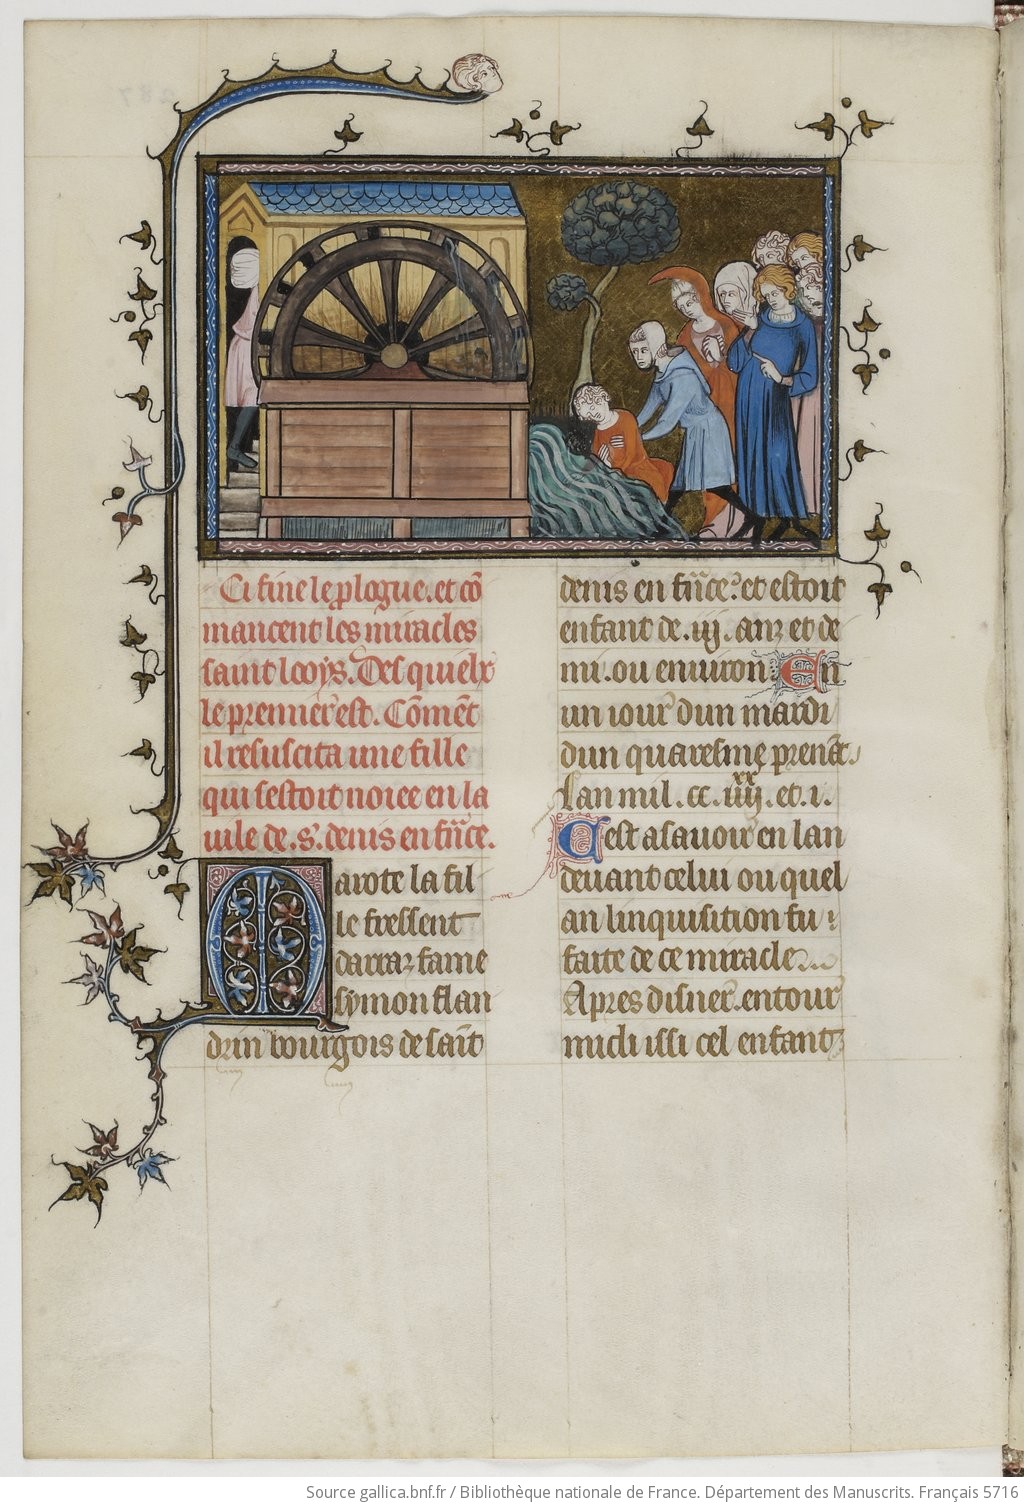 Ci fine le plogue. et cō
mancent les miracles
saint looys. Des quielx
le premier est. Cōment
il resuscita une fille
qui sestoit noiee en la
uile de .s. denis en frāce.
Marote la fil
le fressent
darraz fame
symon flan
drin bourgois de saīt
denis en frāce. et estoit
enfant de .iij. anz et de
mi. ou enuiron En
un iour dun mardi
dun quaresme prenāt.
Lan mil .cc. iiij.xx et .i.
Cest asauoir en lan
deuant celui ou quel
an linquisition fu
faite de ce miracle
Apres disner. entour
midi issi cel enfant
Source gallica.bnf.fr / Bibliothèque nationale de France. Département des Manuscrits. Français 5716